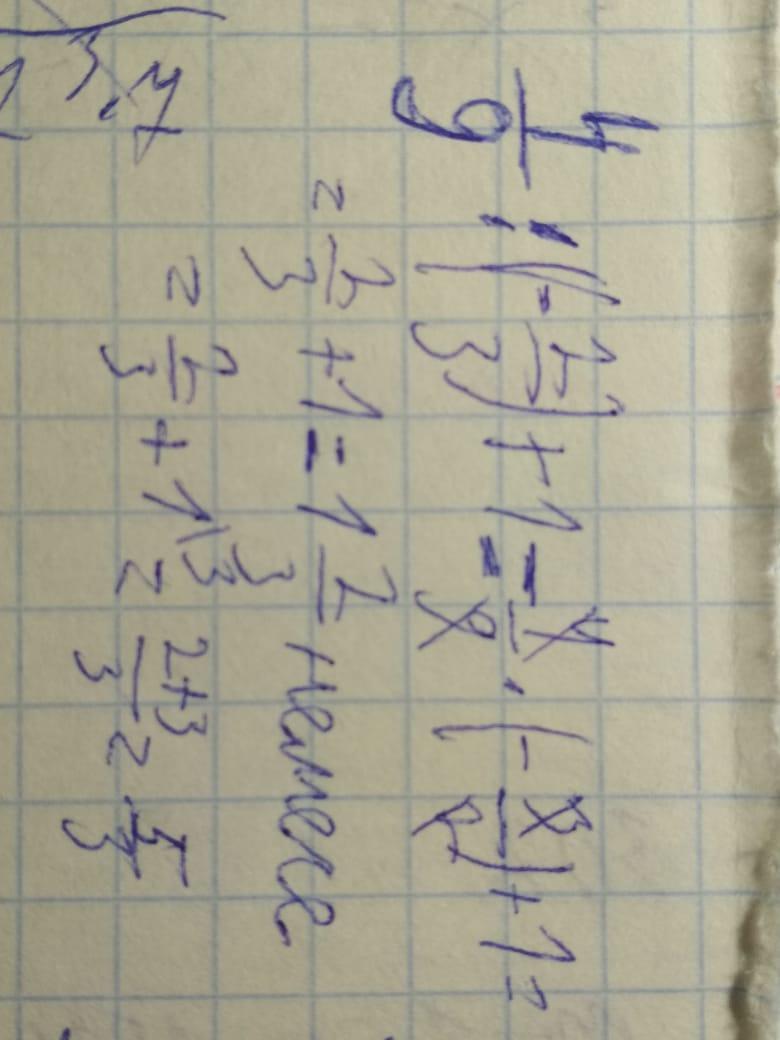 4/9 : (-2/3) + 1 = 4/9 · (-3/2) + 1 =
= 2/3 + 1 = 1 2/3 немесе
= 2/3 + 1\3 = 2+3/3 = 5/3